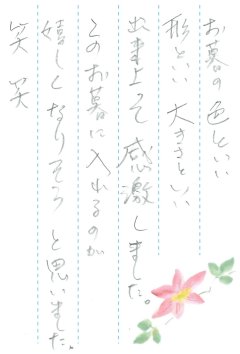 お墓の色といい
形といい大きさといい
出来上って感激しました。
このお墓に入れるのが
嬉しくなりそうと思いました。
笑 笑